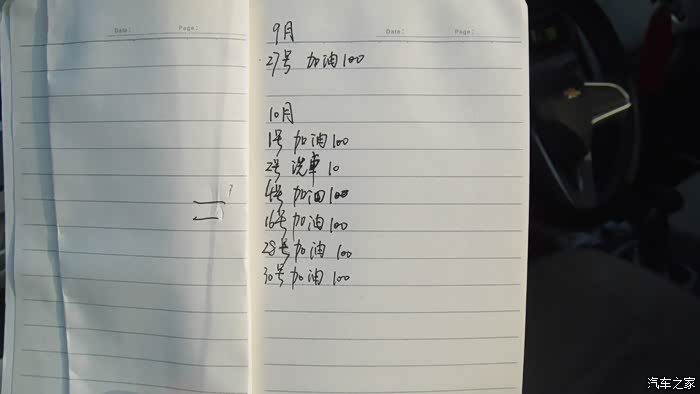 Date:
Page:
9月
Date:
Page:
27号 加油100
10月
1号 加油100
2号 洗車 10
4号 加油100
16号 加油 100
28号 加油 100
30号 加油 100
汽车之家